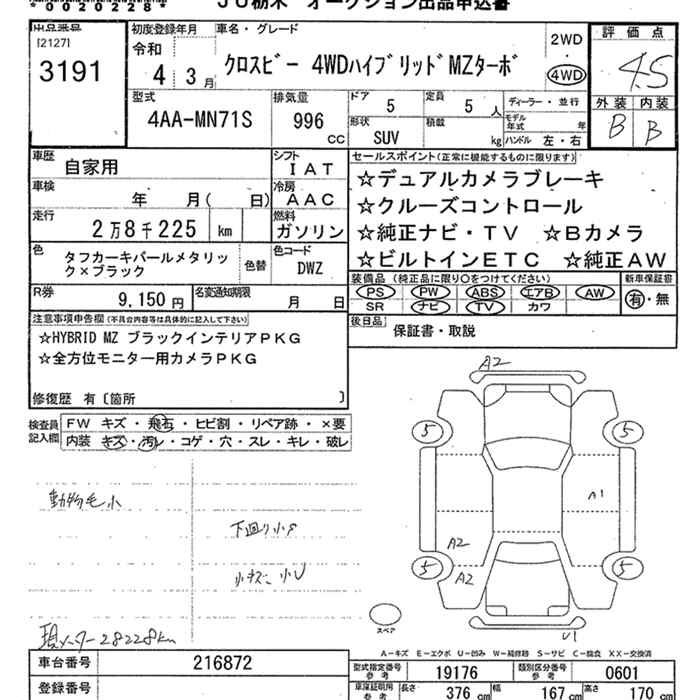 *00020228*
JU栃木 オークション出品申込書
出品番号
[2127]
3191
初度登録年月
令和
4 3月
車名・グレード
クロスビー 4WDハイブリッドMZターボ
2WD
・
4WD
評価点
4.5
外装 内装
B B
型式
4AA-MN71S
排気量
996
CC
ドア
5
定員
5 人
形状
SUV
積載
kg
ディーラー・並行
モデル年式 年
ハンドル 左・右
車歴
自家用
シフト
IAT
車検
年 月( 日)
冷房
AAC
走行
2万8千225 km
燃料
ガソリン
色
タフカーキパールメタリック×ブラック
色替
色コード
DWZ
R券
9,150円
名変通知期限
月 日
セールスポイント(正常に機能するものに限ります)
☆デュアルカメラブレーキ
☆クルーズコントロール
☆純正ナビ・TV ☆Bカメラ
☆ビルトインETC ☆純正AW
装備品 (純正品に限り○をつけてください)
PS PW ABS エアB AW
SR ナビ TV カワ
新車保証書
有・無
後日品
保証書・取説
注意事項申告欄(不具合内容等は具体的に記入して下さい)
☆HYBRID MZ ブラックインテリアPKG
☆全方位モニター用カメラPKG
修復歴 有〔箇所 〕
検査員記入欄
FW キズ・飛石・ヒビ割・リペア跡・×要
内装 キズ・汚レ・コゲ・穴・スレ・キレ・破レ
動物毛小
下回り小サ
小キズ 小U
現メーター28228km
A2
5 5
A1
A2
5 5
A2
U1
スペア
A-キズ E-エクボ U-凹み W-補修跡 S-サビ C-腐食 XX-交換済
車台番号
216872
登録番号
型式指定番号
参考
19176
類別区分番号
参考
0601
車庫証明用
参考
長さ
376 cm
幅
167 cm
高さ
170 cm